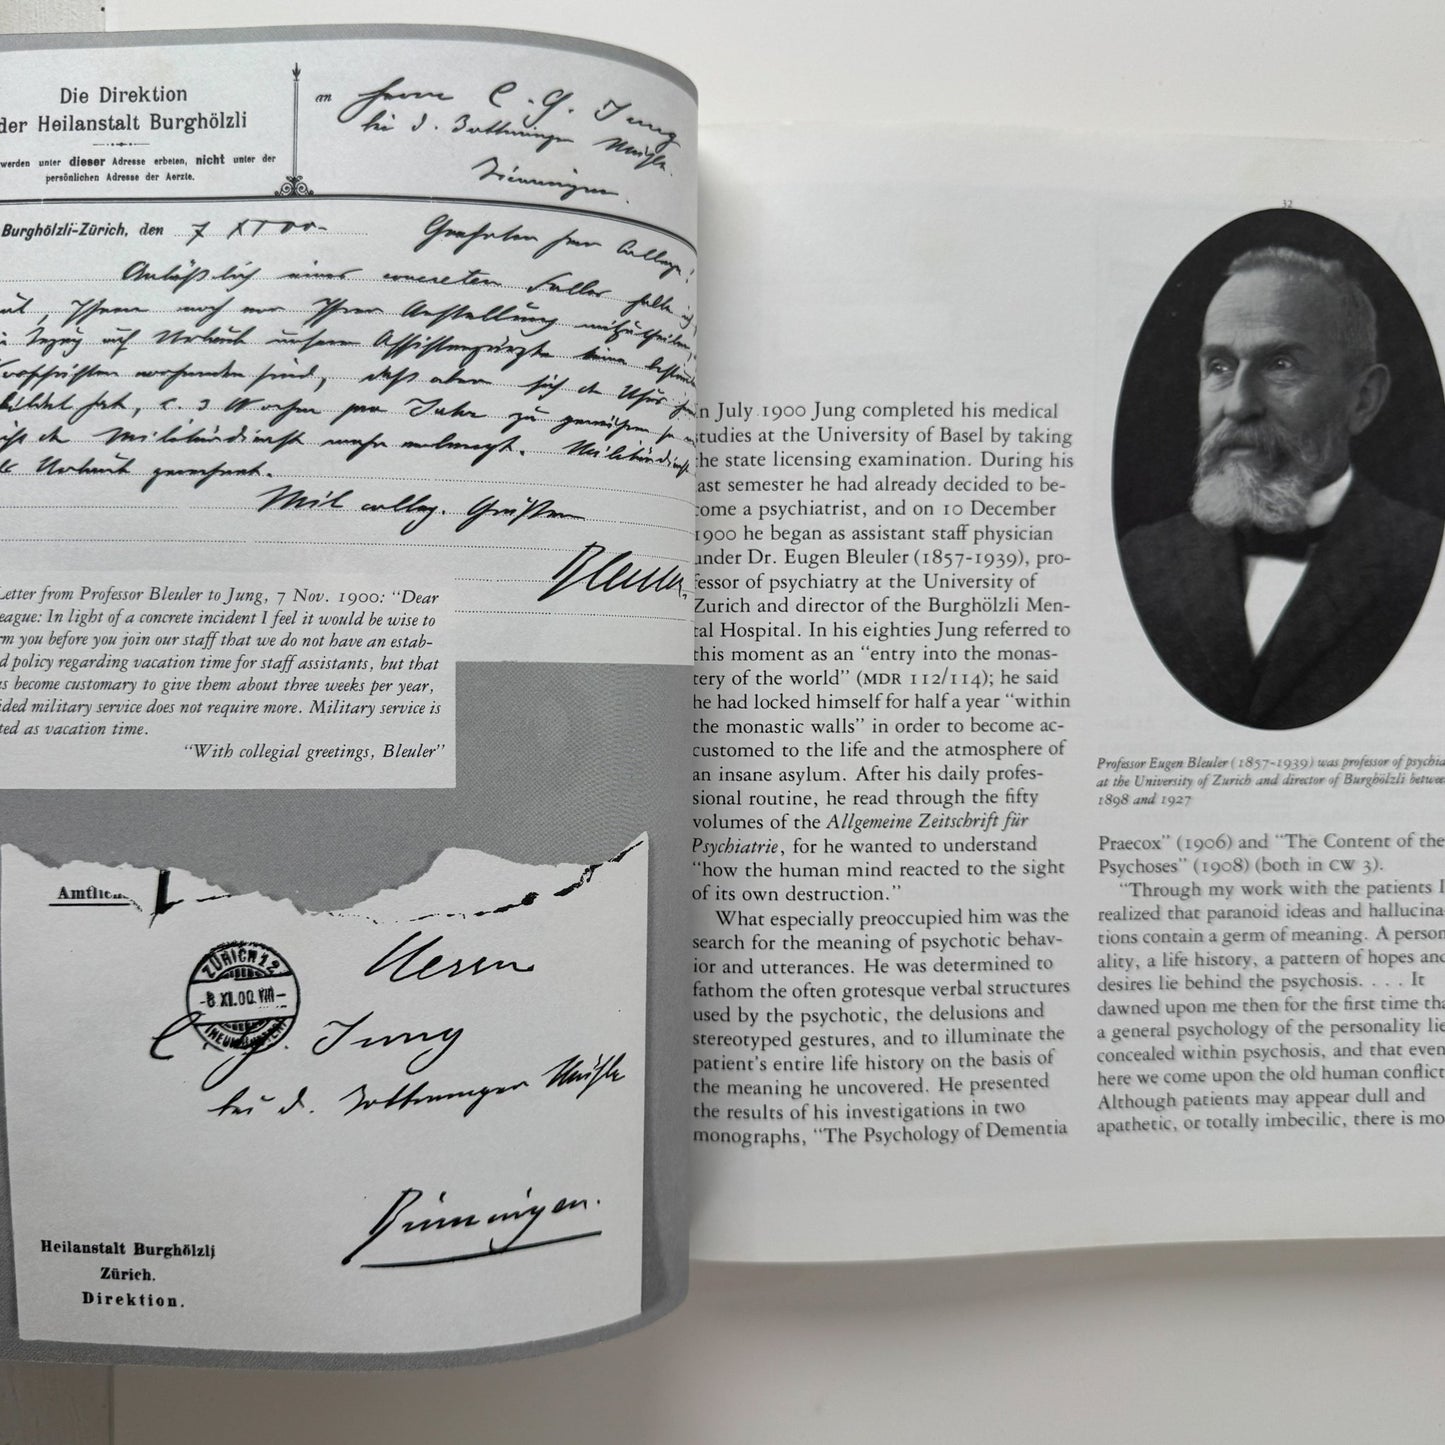 Die Direktion
der Heilanstalt Burghölzli
werden unter dieser Adresse erbeten, nicht unter der
persönlichen Adresse der Aerzte.
an Herrn C. G. Jung
bei d.
Binningen.
Burghölzli-Zürich, den 7 XI 00.
Geehrter Herr College!
Anläßlich eines concreten Falles halte ich
Ihnen noch vor Ihrer Anstellung mitzutheilen,
in Bezug auf Urlaub unserer Assistenzärzte keine
Vorschriften vorhanden sind, daß aber sich die Usus
bildet hat, c. 3 Wochen pro Jahr zu gewähren
Militärdienst mehr verlangt. Militärdienst
Urlaub gerechnet.
Mit colleg. Grüßen
Bleuler,
Letter from Professor Bleuler to Jung, 7 Nov. 1900: “Dear
eague: In light of a concrete incident I feel it would be wise to
rm you before you join our staff that we do not have an estab-
d policy regarding vacation time for staff assistants, but that
as become customary to give them about three weeks per year,
ided military service does not require more. Military service is
ted as vacation time.
“With collegial greetings, Bleuler”
ZÜRICH 12
-8 XI.00. VIII-
Herrn
C. G. Jung
bei d.
Binningen.
Heilanstalt Burghölzli
Zürich.
Direktion.
32
In July 1900 Jung completed his medical
studies at the University of Basel by taking
the state licensing examination. During his
last semester he had already decided to be-
come a psychiatrist, and on 10 December
1900 he began as assistant staff physician
under Dr. Eugen Bleuler (1857-1939), pro-
fessor of psychiatry at the University of
Zurich and director of the Burghölzli Men-
tal Hospital. In his eighties Jung referred to
this moment as an “entry into the monas-
tery of the world” (MDR 112/114); he said
he had locked himself for half a year “within
the monastic walls” in order to become ac-
customed to the life and the atmosphere of
an insane asylum. After his daily profes-
sional routine, he read through the fifty
volumes of the Allgemeine Zeitschrift für
Psychiatrie, for he wanted to understand
“how the human mind reacted to the sight
of its own destruction.”
What especially preoccupied him was the
search for the meaning of psychotic behav-
ior and utterances. He was determined to
fathom the often grotesque verbal structures
used by the psychotic, the delusions and
stereotyped gestures, and to illuminate the
patient’s entire life history on the basis of
the meaning he uncovered. He presented
the results of his investigations in two
monographs, “The Psychology of Dementia
Professor Eugen Bleuler (1857-1939) was professor of psychia
at the University of Zurich and director of Burghölzli betwe
1898 and 1927
Praecox” (1906) and “The Content of the
Psychoses” (1908) (both in CW 3).
“Through my work with the patients I
realized that paranoid ideas and hallucina
tions contain a germ of meaning. A person
ality, a life history, a pattern of hopes and
desires lie behind the psychosis. . . . It
dawned upon me then for the first time tha
a general psychology of the personality lie
concealed within psychosis, and that even
here we come upon the old human conflict
Although patients may appear dull and
apathetic, or totally imbecilic, there is mo